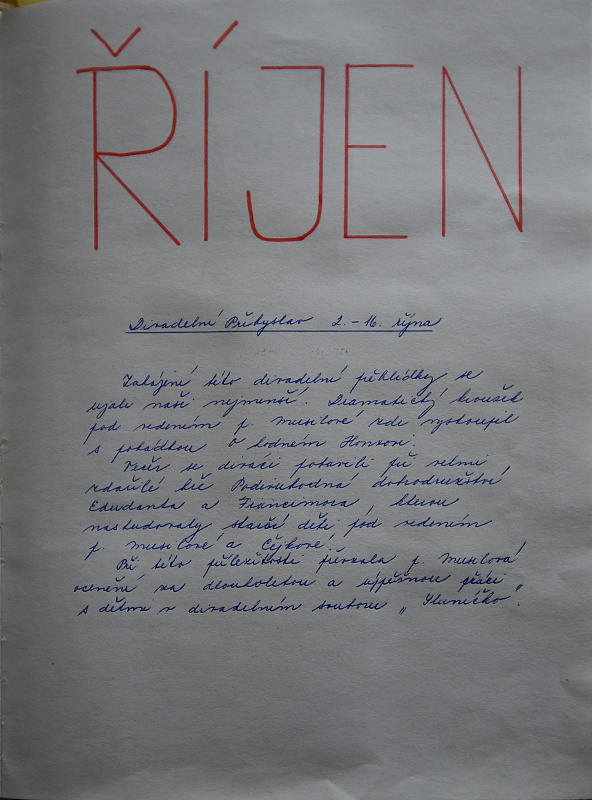 ŘÍJEN
Divadelní Přibyslav 2.-16. října
Zahájení této divadelní přehlídky se
ujali naši nejmenší. Dramatický kroužek
pod vedením p. Musilové zde vystoupil
s pohádkou O hodném Honzovi.
Večer se diváci pobavili při velmi
zdařilé hře Podivuhodná dobrodružství
Edudanta a Francimora, kterou
nastudovaly starší děti pod vedením
p. Musilové a Čejkové.
Při této příležitosti převzala p. Musilová
ocenění za dlouholetou a úspěšnou práci
s dětmi v divadelním souboru „Sluníčko".